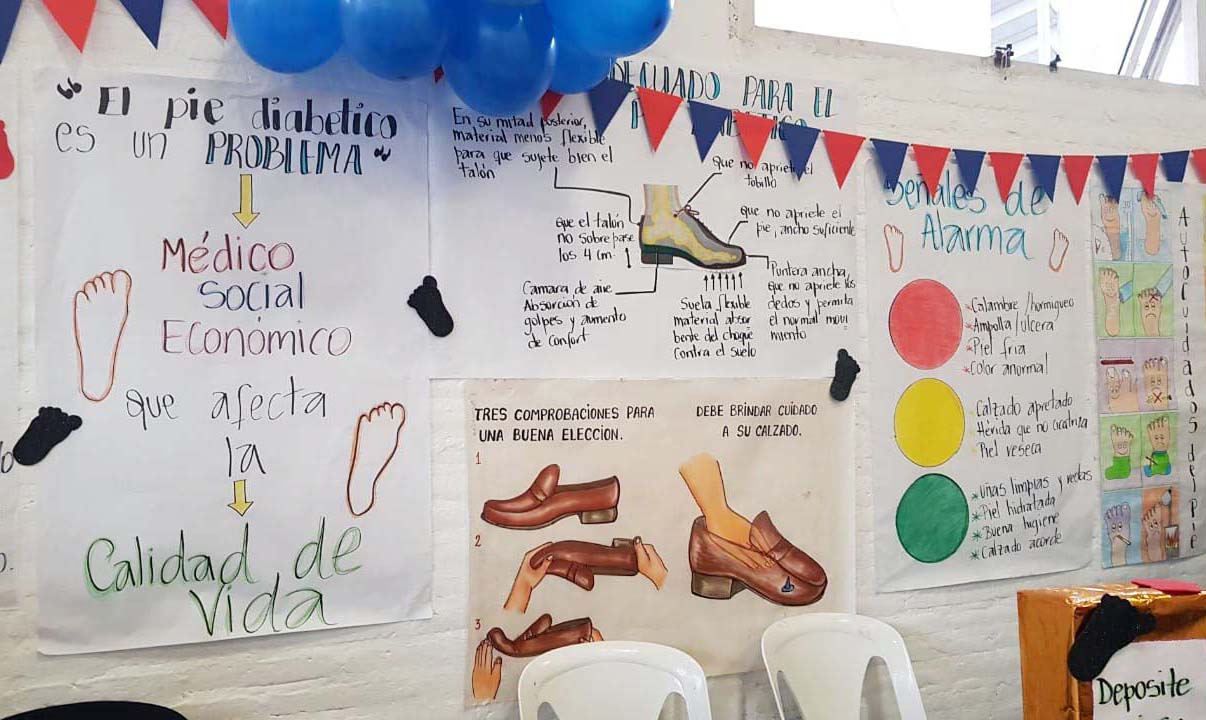 "El pie diabetico
es un PROBLEMA"
Médico
Social
Económico
que afecta
la
Calidad de
Vida
PARA EL
En su mitad posterior,
material menos flexible
para que sujete bien el
talón
que no apriete el
tobillo
que el talón
no sobre pase
los 4 cm.
que no apriete el
pie, ancho suficiente
Camara de aire
Absorción de
golpes y aumento
de confort
Suela flexible
material absor
bente del choque
Contra el suelo
Puntera ancha,
que no apriete los
dedos y permita
el normal movi
miento
TRES COMPROBACIONES PARA
UNA BUENA ELECCION.
1
2
3
DEBE BRINDAR CUIDADO
A SU CALZADO.
Señales de
Alarma
*Calambre/hormigueo
*Ampolla/ulcera
*Piel fria
*Color anormal
Calzado apretado
Hérida que no cicatriza
Piel reseca
*Uñas limpias y rectas
*Piel hidratada
*Buena higiene
*Calzado acorde
Autocuidados del Pie
Deposite